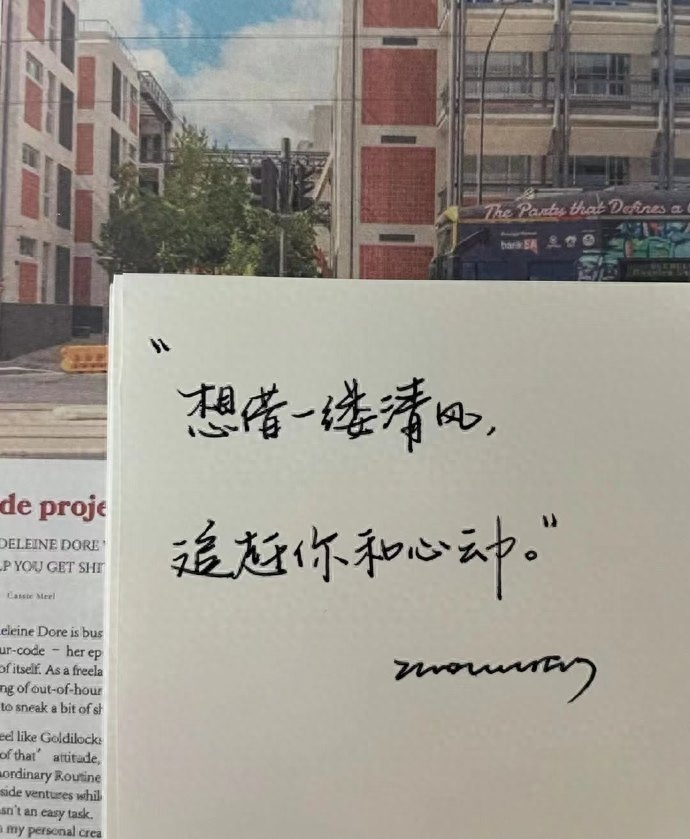 The Party that Defines a
bankSA
"想借一缕清风,
追赶你和心动。"
de proje
DELEINE DORE
P YOU GET SHI
Cassie Steel
eleine Dore is bus
ur-code – her ep
of itself. As a freela
ng of out-of-hour
to sneak a bit of sh
eel like Goldilocks
of that' attitude,
aordinary Routine
side ventures whil
sn't an easy task.
n my personal crea